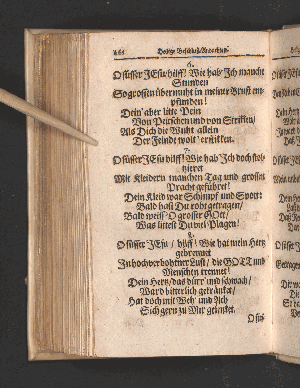 6.
O süsser JEsu/hilff! Wie hab' Ich manche
Stunden
So grossen übermuht in meiner Brust em-
pfunden!
Dein' aber litte Pein
Von Peitschen und von Stricken/
Als Dich die Wuht allein
Der Feinde wolt' ersticken.
7.
O süsser JEsu/hilff! Wie hab' Ich doch stol-
zieret
Mit Kleidern manchen Tag und grossen
Pracht geführet!
Dein Kleid war Schimpf und Spott:
Bald hast Du roht getragen/
Bald weiß/ O grosser GOtt/
Was littest Du vor Plagen!
8.
O süsser JEsu / hilff! Wie hat mein Hertz
gebrennet
In hochverbohtner Lust/ die GOTT und
Menschen trennet!
Dein Hertz/ das dürr' und schwach/
Ward bitterlich gekränket/
Hat doch mit Weh' und Ach
Sich gern zu Mir gelenket.
O süs-